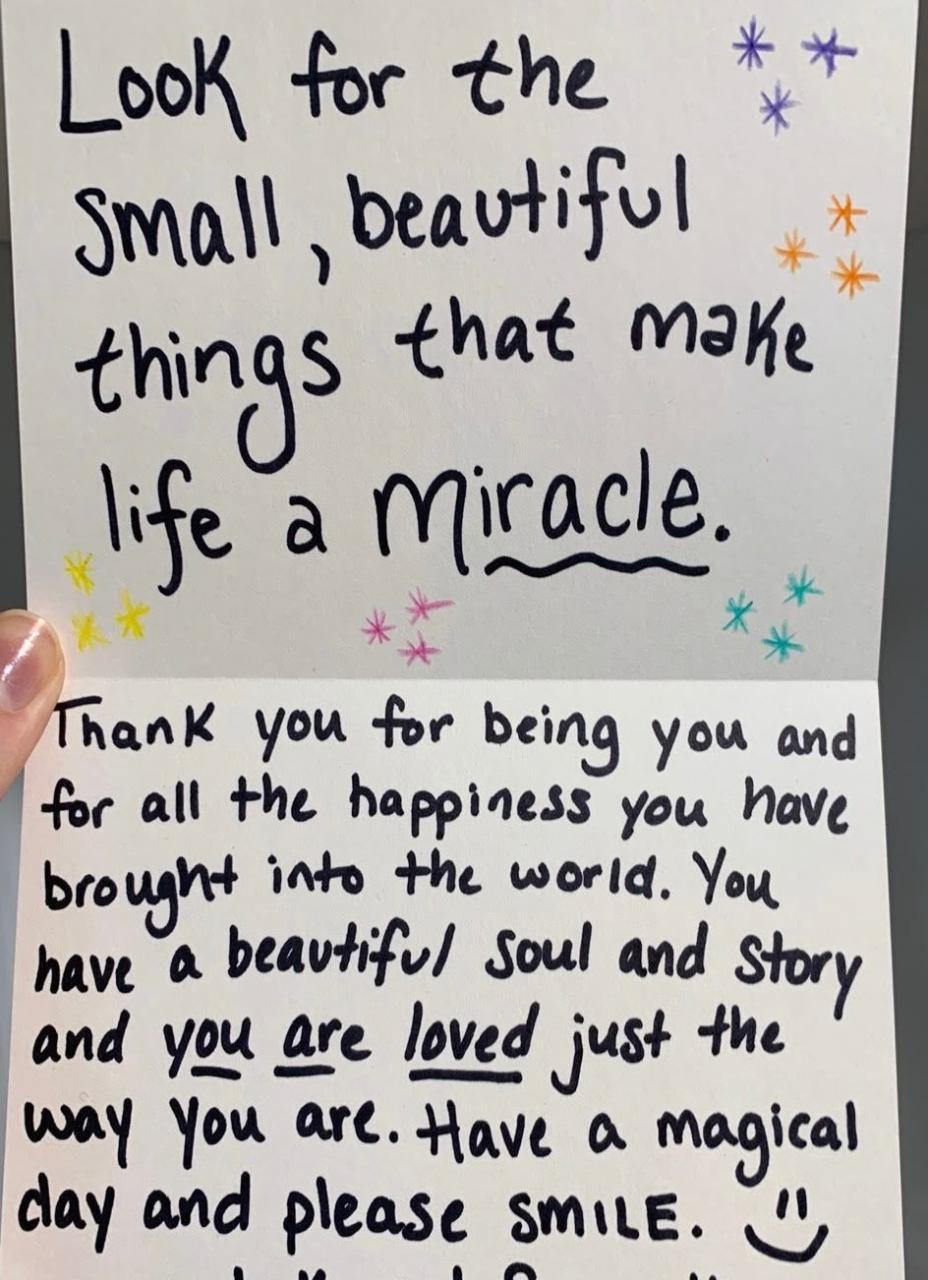 Look for the
small, beautiful
things that make
life a miracle.
Thank you for being you and
for all the happiness you have
brought into the world. You
have a beautiful soul and story
and you are loved just the
way you are. Have a magical
day and please SMILE.